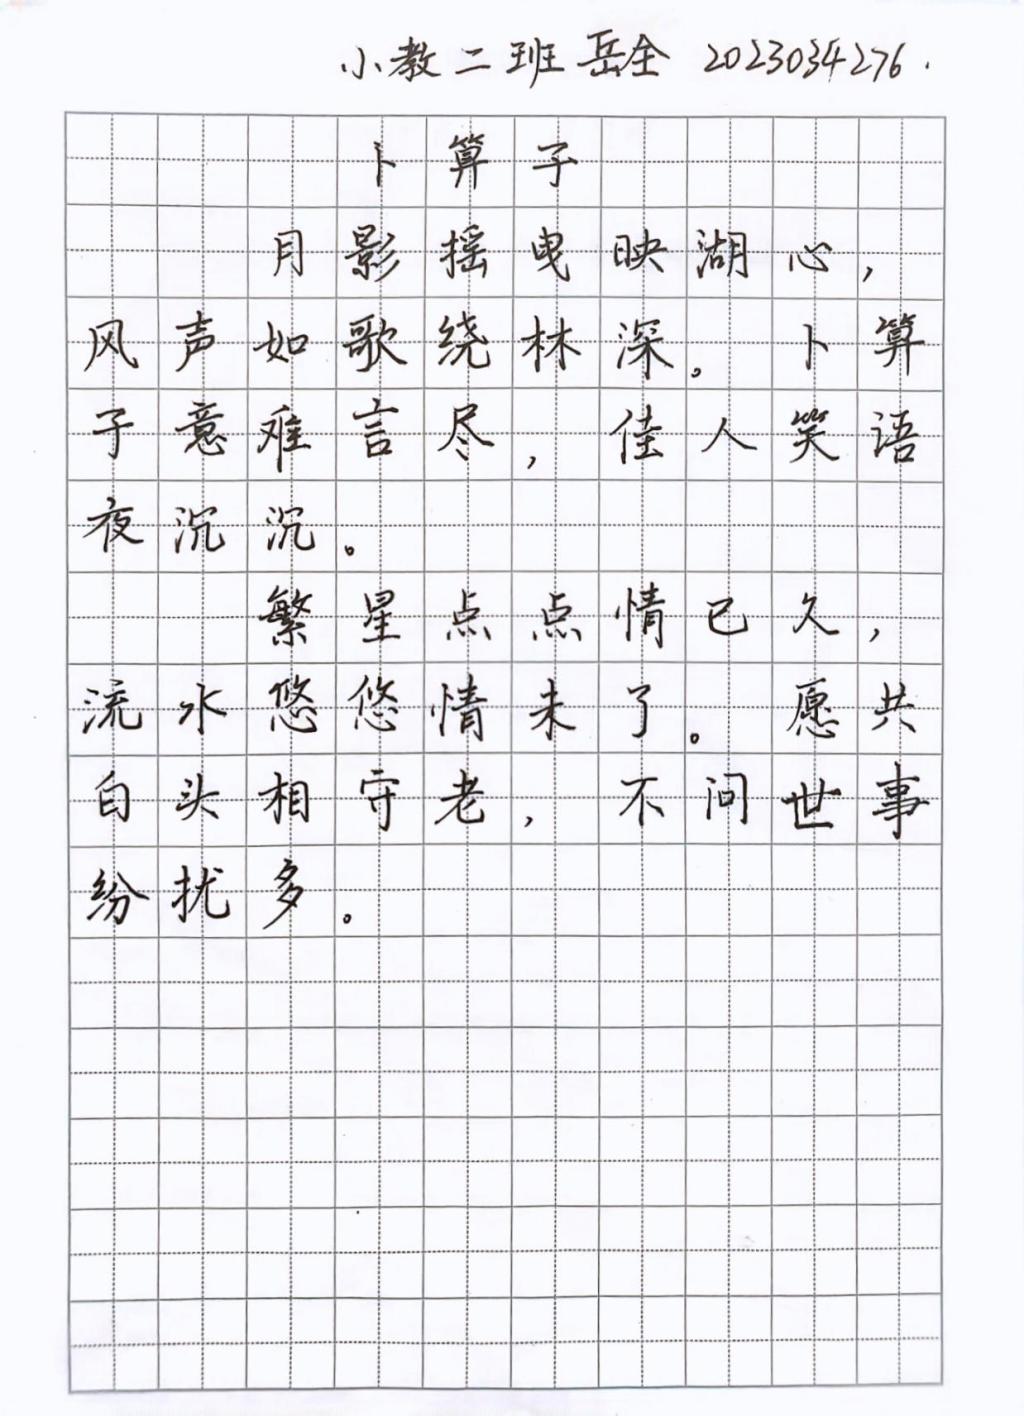 小教二班 岳全 2023034276.
卜算子
月影摇曳映湖心，
风声如歌绕林深。卜算
子意难言尽，佳人笑语
夜沉沉。
繁星点点情已久，
流水悠悠情未了。愿共
白头相守老，不问世事
纷扰多。